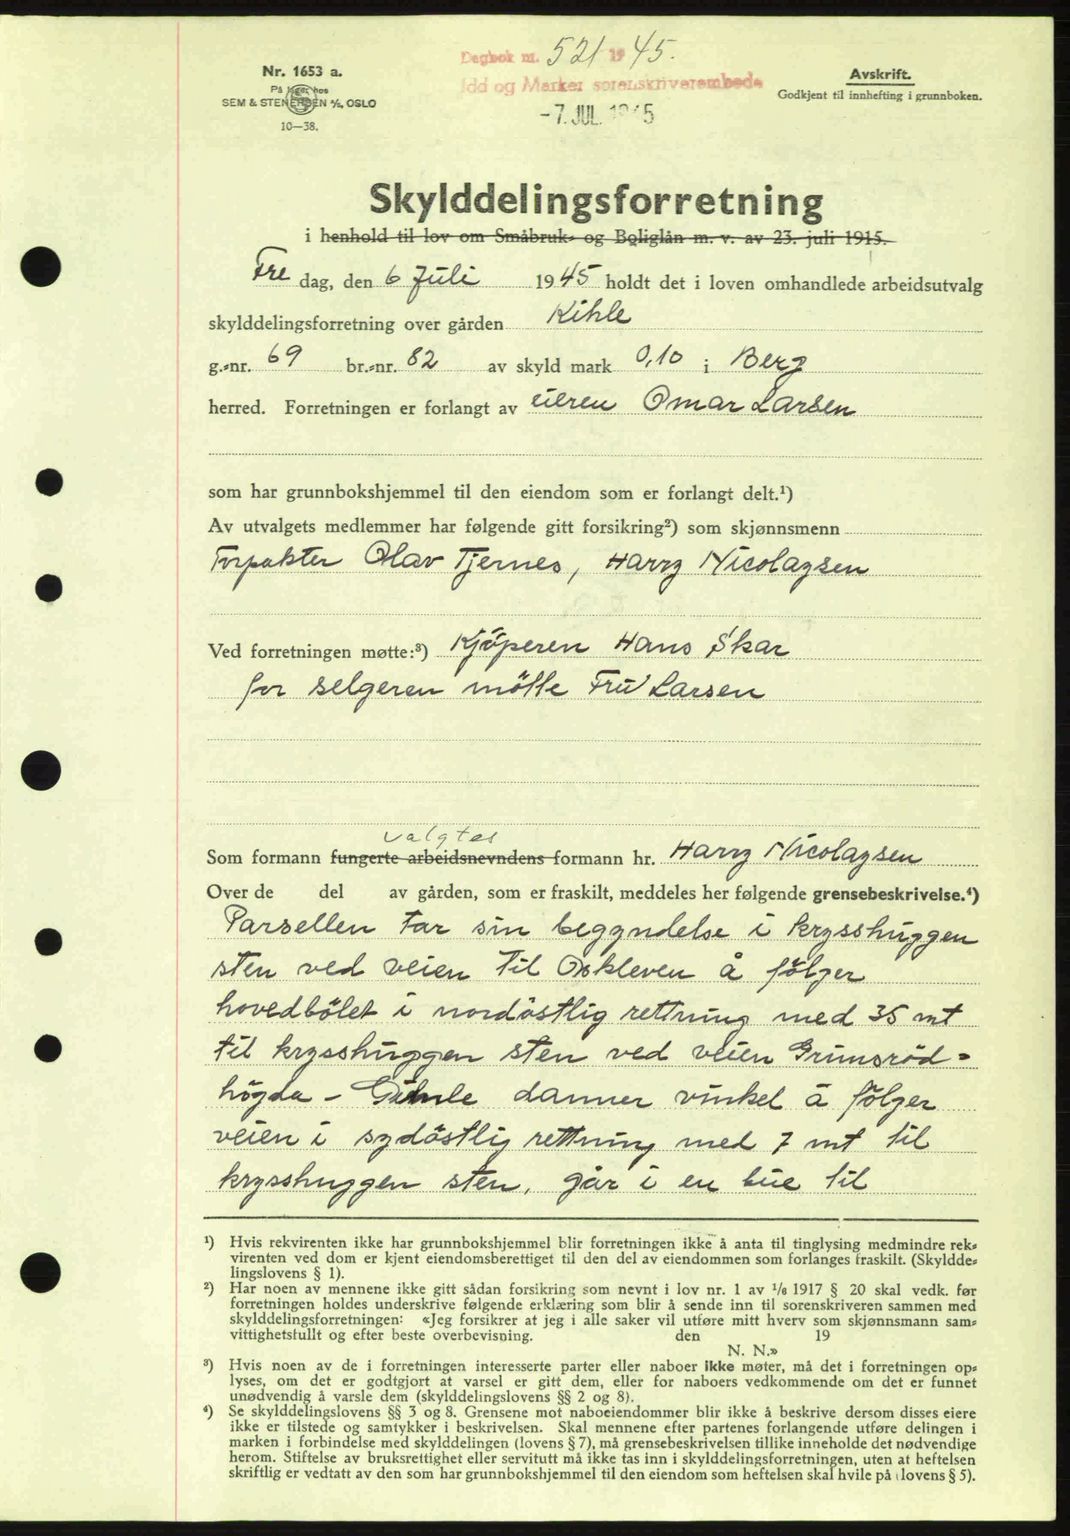 Nr. 1653 a.
På lager hos
SEM & STENERSEN A/S, OSLO
10—38.
Dagbok nr. 521 1945.
Idd og Marker sorenskriverembede
-7. JUL. 1945
Avskrift.
Godkjent til innhefting i grunnboken.
Skylddelingsforretning
i henhold til lov om Småbruk- og Boliglån m. v. av 23. juli 1915.
Fre dag, den 6 Juli 1945 holdt det i loven omhandlede arbeidsutvalg
skylddelingsforretning over gården Kihle
g.-nr. 69 br.-nr. 82 av skyld mark 0,10 i Berg
herred. Forretningen er forlangt av eieren Omar Larsen
som har grunnbokshjemmel til den eiendom som er forlangt delt.¹)
Av utvalgets medlemmer har følgende gitt forsikring²) som skjønnsmenn
Forpakter Olav Tjernes, Harry Nicolaysen
Ved forretningen møtte:³) Kjöperen Hans Skar
for selgeren mötte Fru Larsen
valgtes
Som formann fungerte arbeidsnevndens formann hr. Harry Nicolaysen
Over de del av gården, som er fraskilt, meddeles her følgende grensebeskrivelse.⁴)
Parsellen tar sin begyndelse i krysshuggen
sten ved veien til Oskleven å fölger
hovedbölet i nordöstlig rettning med 35 mt
til krysshuggen sten ved veien Grimsröd-
högda - Gimle danner vinkel å fölger
veien i sydöstlig rettning med 7 mt til
krysshuggen sten, går i en bue til
¹) Hvis rekvirenten ikke har grunnbokshjemmel blir forretningen ikke å anta til tinglysing medmindre rek-
virenten ved dom er kjent eiendomsberettiget til den del av eiendommen som forlanges fraskilt. (Skyldde-
lingslovens § 1).
²) Har noen av mennene ikke gitt sådan forsikring som nevnt i lov nr. 1 av 1/6 1917 § 20 skal vedk. før
forretningen holdes underskrive følgende erklæring som blir å sende inn til sorenskriveren sammen med
skylddelingsforretningen: «Jeg forsikrer at jeg i alle saker vil utføre mitt hverv som skjønnsmann sam-
vittighetsfullt og efter beste overbevisning. den 19
N. N.»
³) Hvis noen av de i forretningen interesserte parter eller naboer ikke møter, må det i forretningen op-
lyses, om det er godtgjort at varsel er gitt dem, eller for naboers vedkommende om det er funnet
unødvendig å varsle dem (skylddelingslovens §§ 2 og 8).
⁴) Se skylddelingslovens §§ 3 og 8. Grensene mot naboeiendommer blir ikke å beskrive dersom disses eiere
ikke er tilstede og samtykker i beskrivelsen. Skal mennene efter partenes forlangende utføre delingen i
marken i forbindelse med skylddelingen (lovens § 7), må grensebeskrivelsen tillike inneholde det nødvendige
herom. Stiftelse av bruksrettighet eller servitutt må ikke tas inn i skylddelingsforretningen, uten at heftelsen
skriftlig er vedtatt av den som har grunnbokshjemmel til den eiendom som heftelsen skal hvile på (lovens § 5).